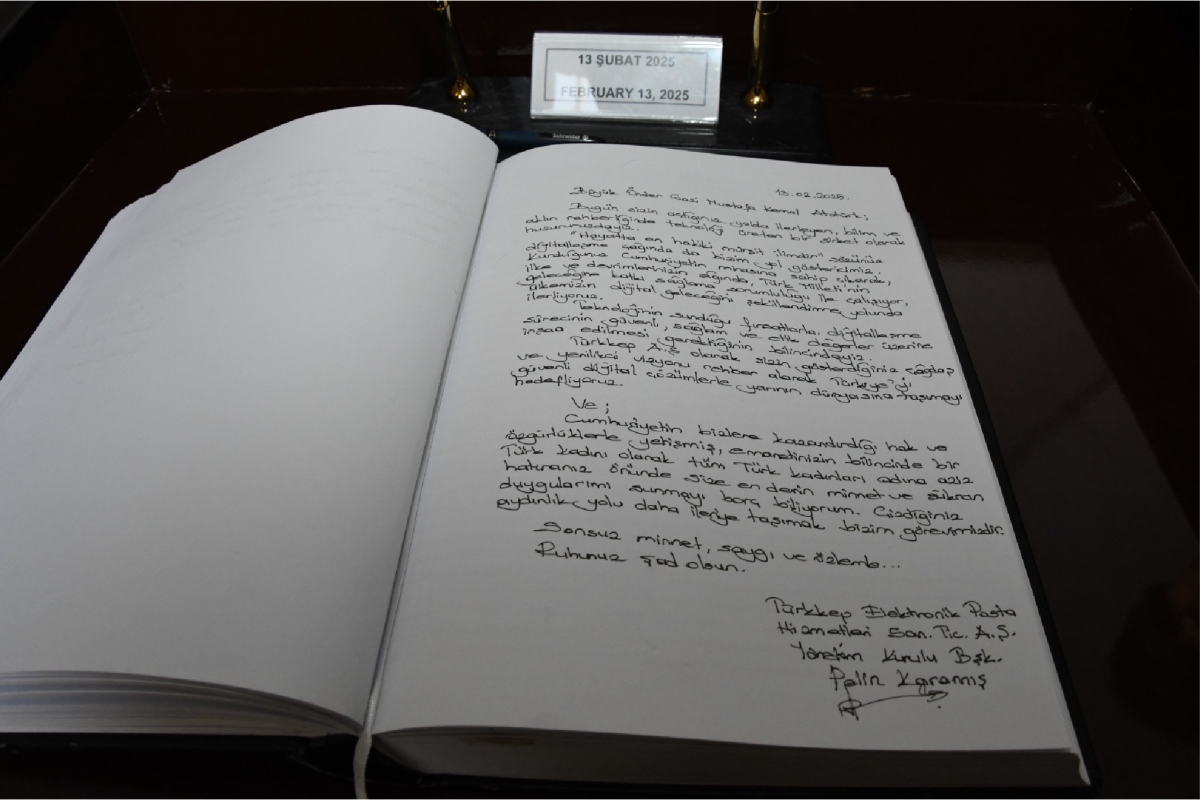 13 ŞUBAT 2025
FEBRUARY 13, 2025
Schneider
13.02.2025.
Büyük Önder Gazi Mustafa Kemal Atatürk;
Bugün sizin açtığınız yolda ilerleyen, bilim ve
aklın rehberliğinde teknoloji üreten bir şirket olarak
huzurunuzdayız.
"Hayatta en hakiki mürşit ilimdir" sözünüz
dijitalleşme çağında da bizim yol göstericimiz.
Kurduğunuz Cumhuriyetin mirasına sahip çıkarak,
ilke ve devrimlerinizin ışığında, Türk Milleti'nin
geleceğine katkı sağlama sorumluluğu ile çalışıyor,
ülkemizin dijital geleceğini şekillendirme yolunda
ilerliyoruz.
Teknolojinin sunduğu fırsatlarla, dijitalleşme
sürecinin güvenli, sağlam ve etik değerler üzerine
inşaa edilmesi gerektiğinin bilincindeyiz.
Türkkep A.Ş olarak sizin gösterdiğiniz çağdaş
ve yenilikçi vizyonu rehber alarak Türkiye'yi
güvenli dijital çözümlerle yarının dünyasına taşımayı
hedefliyoruz.
Ve;
Cumhuriyetin bizlere kazandırdığı hak ve
özgürlüklerle yetişmiş, emanetinizin bilincinde bir
Türk kadını olarak tüm Türk kadınları adına aziz
hatıranız önünde size en derin minnet ve şükran
duygularımı sunmayı borç biliyorum. Çizdiğiniz
aydınlık yolu daha ileriye taşımak bizim görevimizdir.
Sonsuz minnet, saygı ve özlemle...
Ruhunuz şad olsun.
Türkkep Elektronik Posta
Hizmetleri San. Tic. A.Ş.
Yönetim Kurulu Bşk.
Pelin Karamış